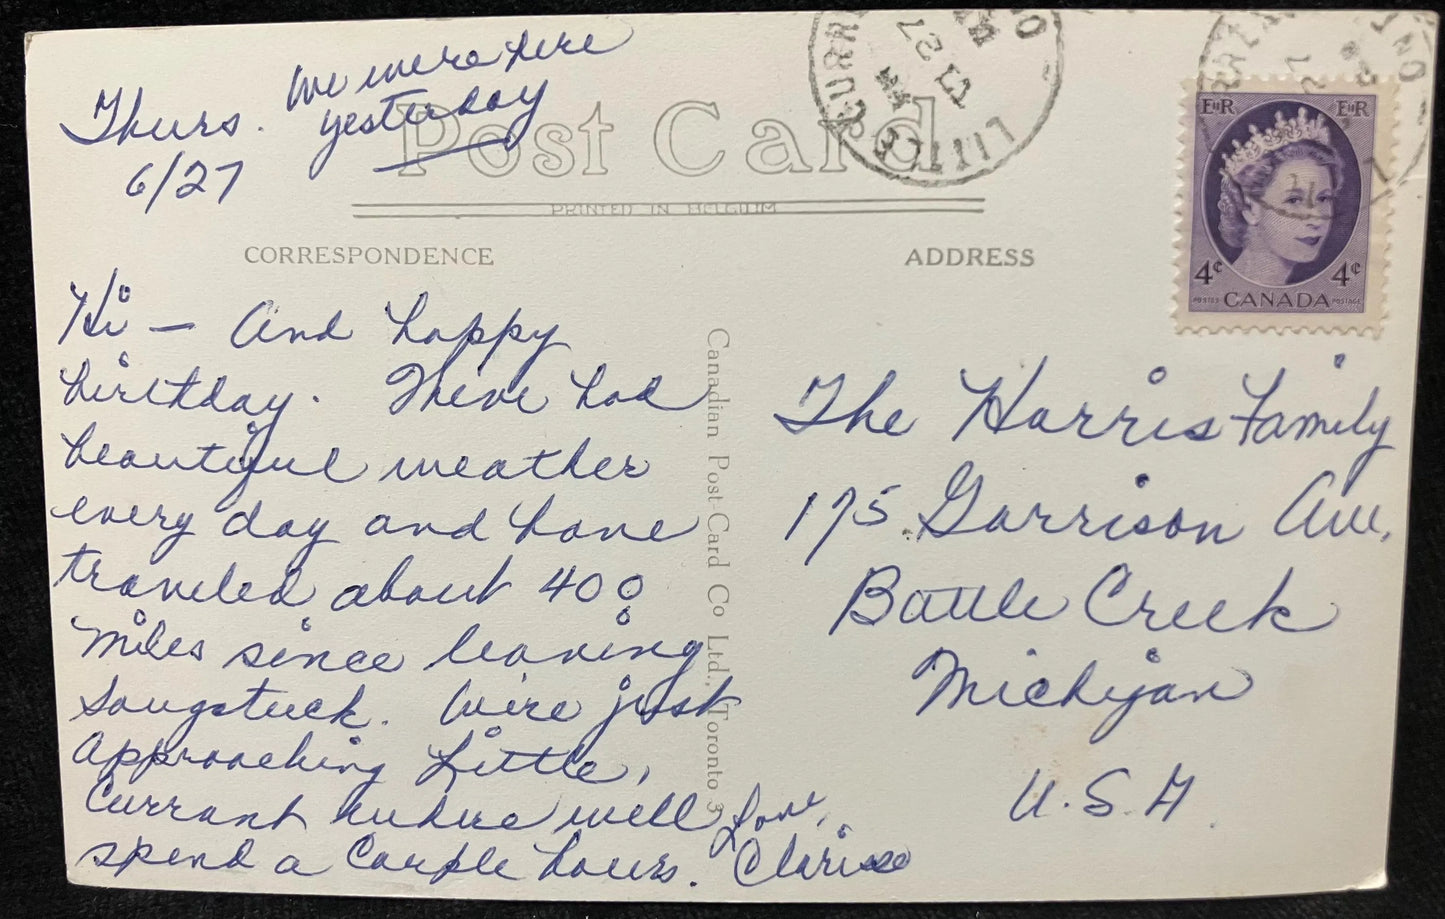 We were here
Thurs. yesterday
6/27
Post Card
PRINTED IN BELGIUM
CORRESPONDENCE
ADDRESS
Hi — And happy
birthday. I've had
beautiful weather
every day and have
traveled about 400
miles since leaving
Saugatuck. We're just
approaching Little
Current where we'll
spend a couple hours.
Love,
Clarise
Canadian Post Card Co Ltd., Toronto 3
EIIR EIIR
4¢ 4¢
POSTES CANADA POSTAGE
The Harris Family
175 Garrison Ave,
Battle Creek
Michigan
U.S.A.
LITTLE CURRENT
ONT